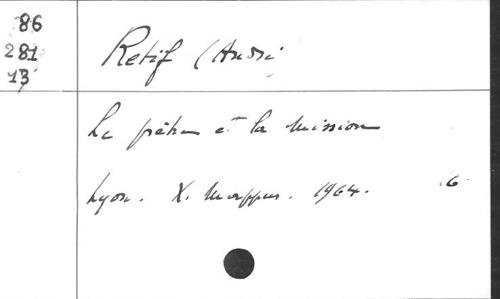 86
281
13
Retif (André
Le prêtre et la mission
Lyon. X. Mappus. 1964. 16